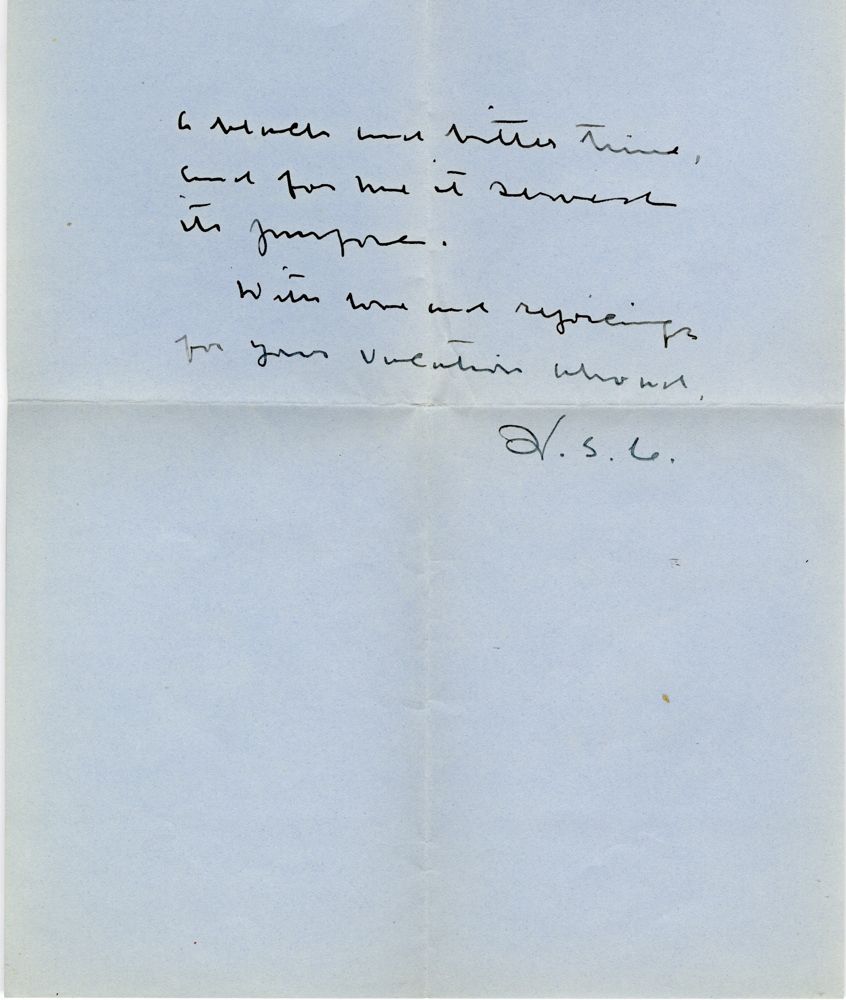 a black and bitter time,
and for me it served
its purpose.
With love and rejoicings
for your vacation ahead,
H. S. C.